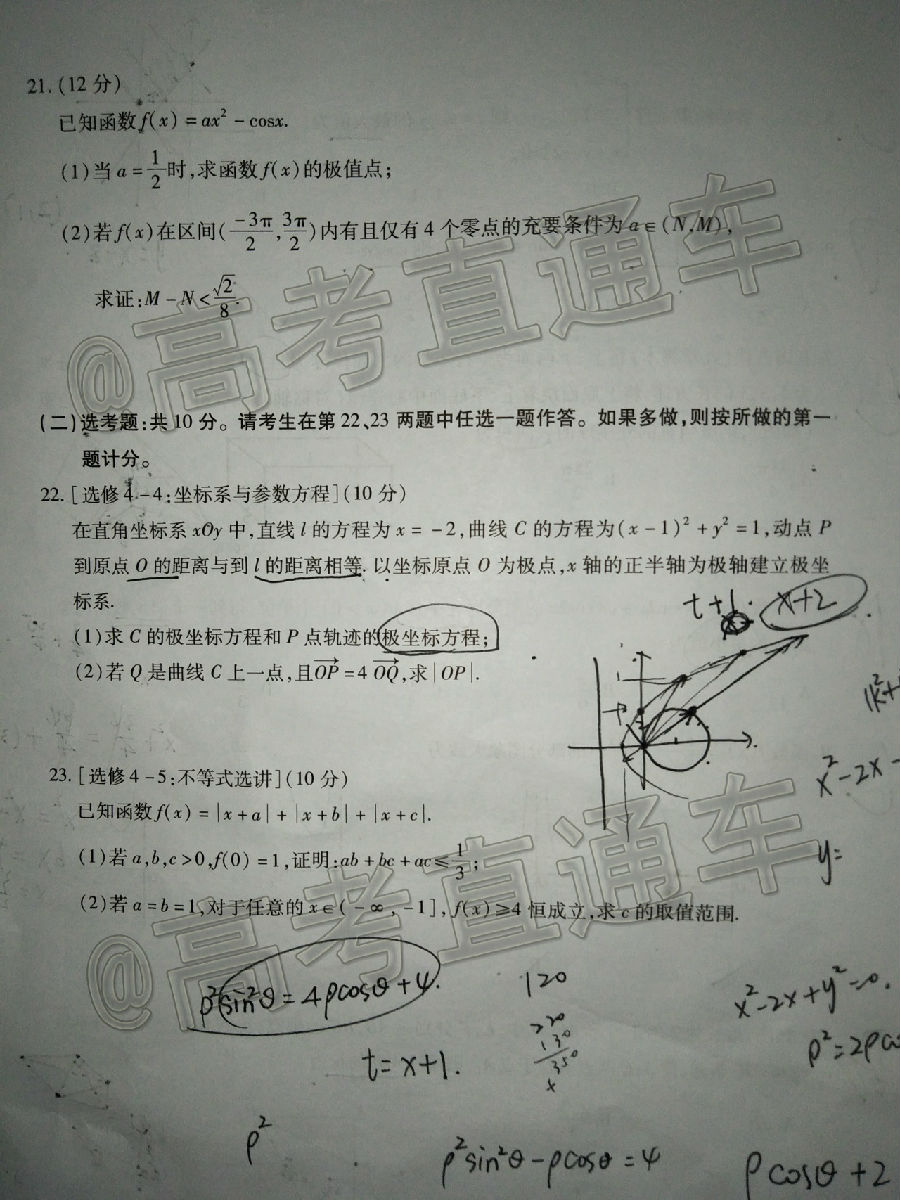 21.(12 分)
已知函数 f(x) = ax² - cosx.
(1)当 a = 1/2 时,求函数 f(x)的极值点;
(2)若 f(x)在区间(-3π/2, 3π/2)内有且仅有 4 个零点的充要条件为 a∈(N,M),
求证:M - N < √2/8.
(二)选考题:共 10 分。请考生在第 22、23 两题中任选一题作答。如果多做,则按所做的第一
题计分。
22.[选修 4-4:坐标系与参数方程](10 分)
在直角坐标系 xOy 中,直线 l 的方程为 x = -2,曲线 C 的方程为(x-1)² + y² = 1,动点 P
到原点 O 的距离与到 l 的距离相等. 以坐标原点 O 为极点,x 轴的正半轴为极轴建立极坐
标系.
t+1. x+2
(1)求 C 的极坐标方程和 P 点轨迹的极坐标方程;
(2)若 Q 是曲线 C 上一点,且OP = 4 OQ,求|OP|.
x²-2x-
23.[选修 4-5:不等式选讲](10 分)
已知函数 f(x) = |x+a| + |x+b| + |x+c|.
(1)若 a,b,c>0,f(0)=1,证明:ab+bc+ac≤1/3;
y=
(2)若 a=b=1,对于任意的 x∈(-∞,-1],f(x)≥4 恒成立,求 c 的取值范围.
ρ²sin²θ=4ρcosθ+4.
120
x²-2x+y²=0.
220
130
350
x
t=x+1.
ρ²=2ρco
ρ²
ρ²sin²θ-ρcosθ=4
ρcosθ+2
@高考直通车
@高考直通车